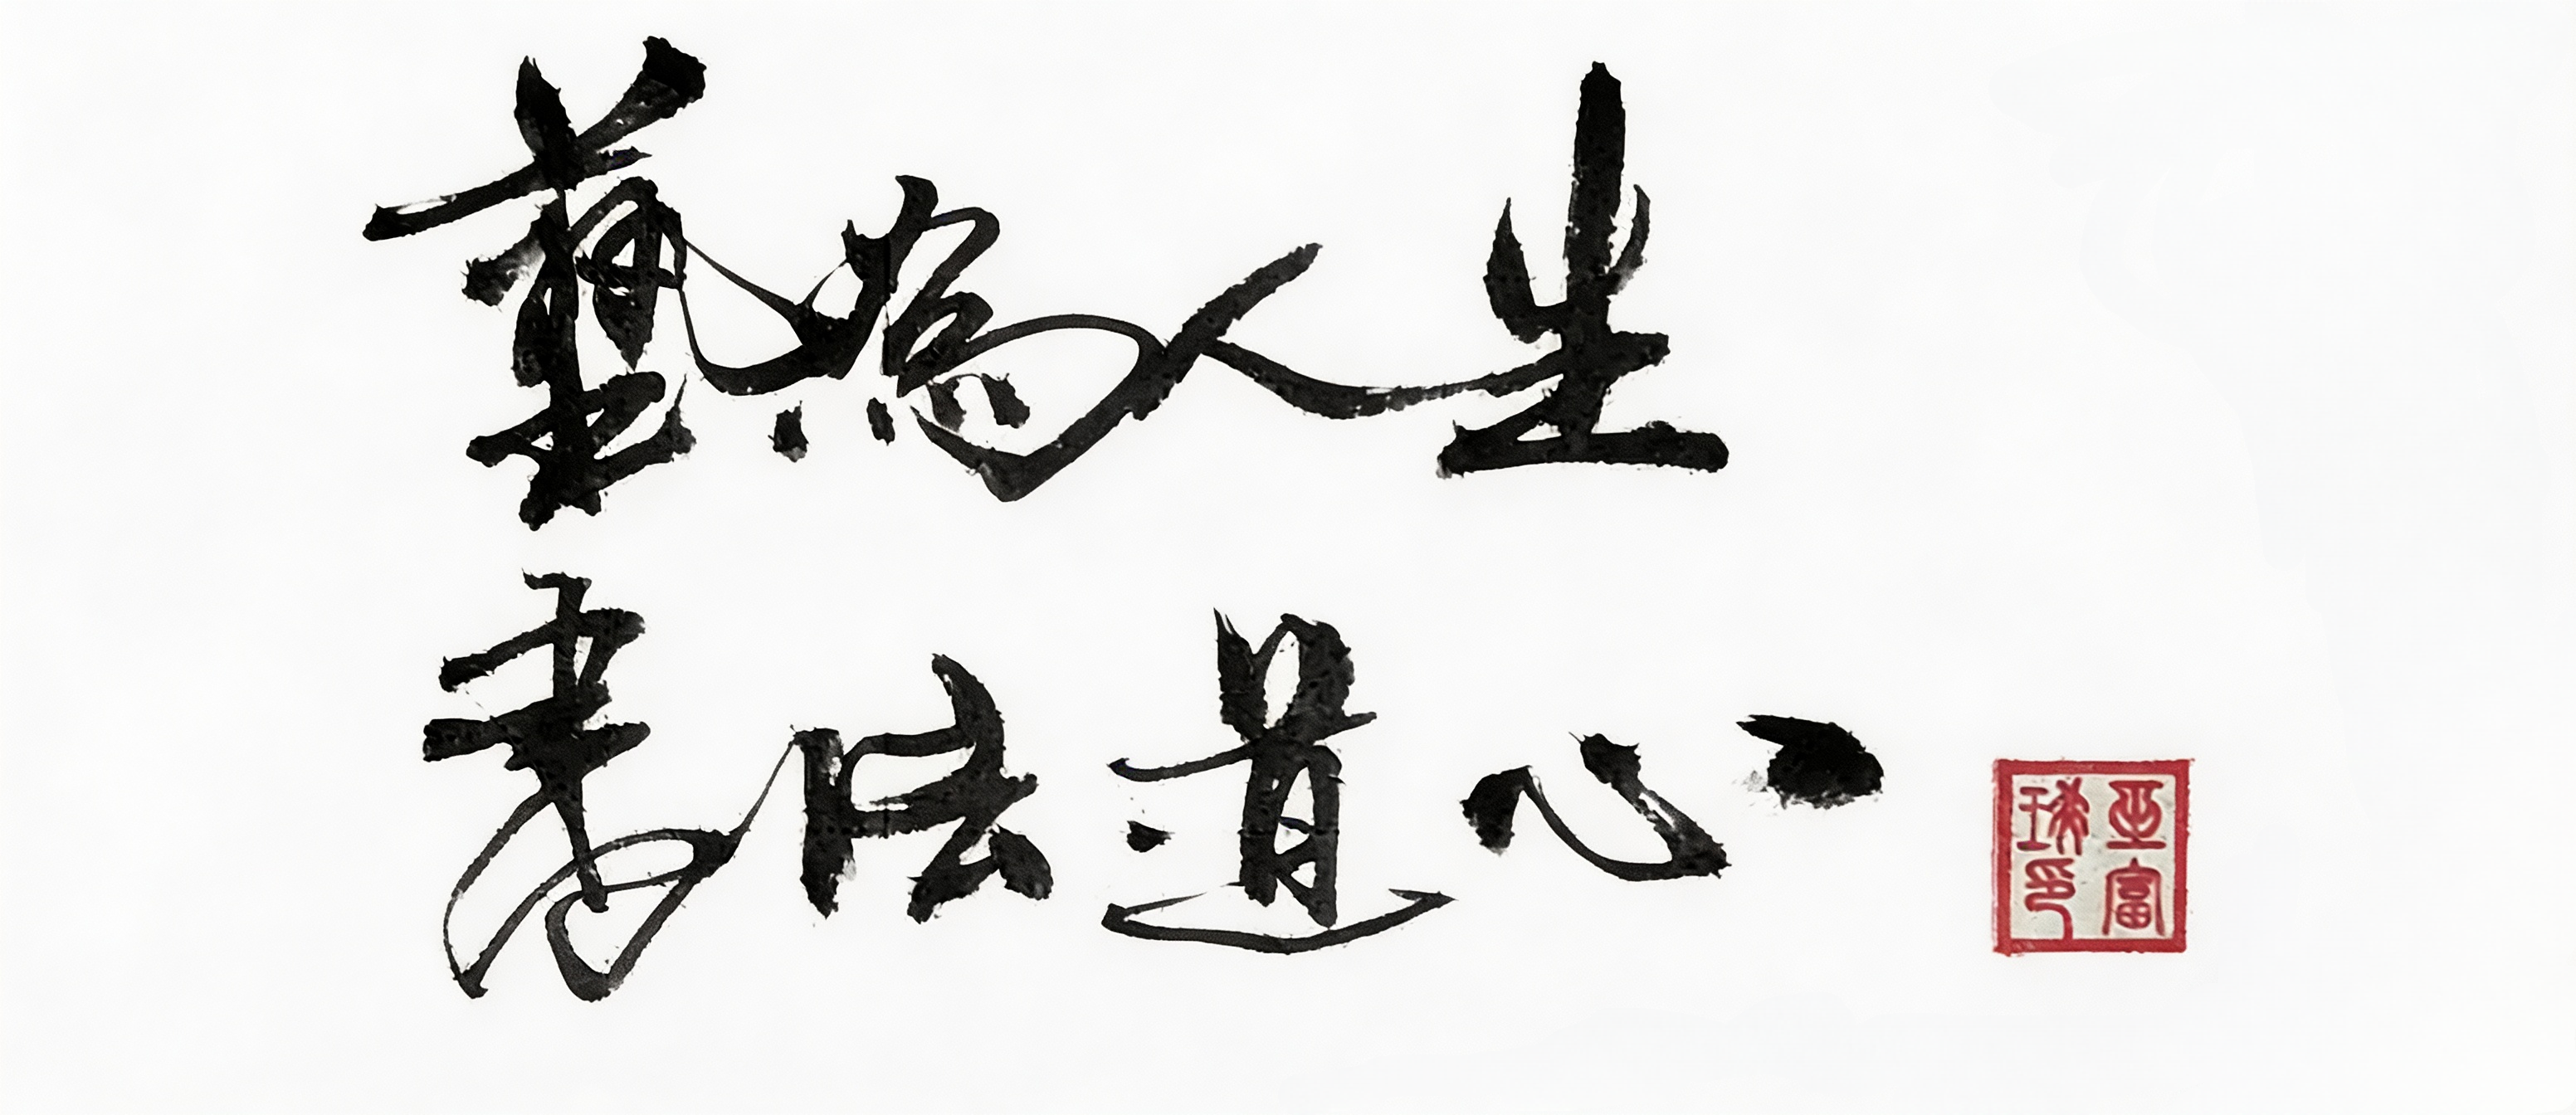 藝為人生
書法道心
亚富
珠印